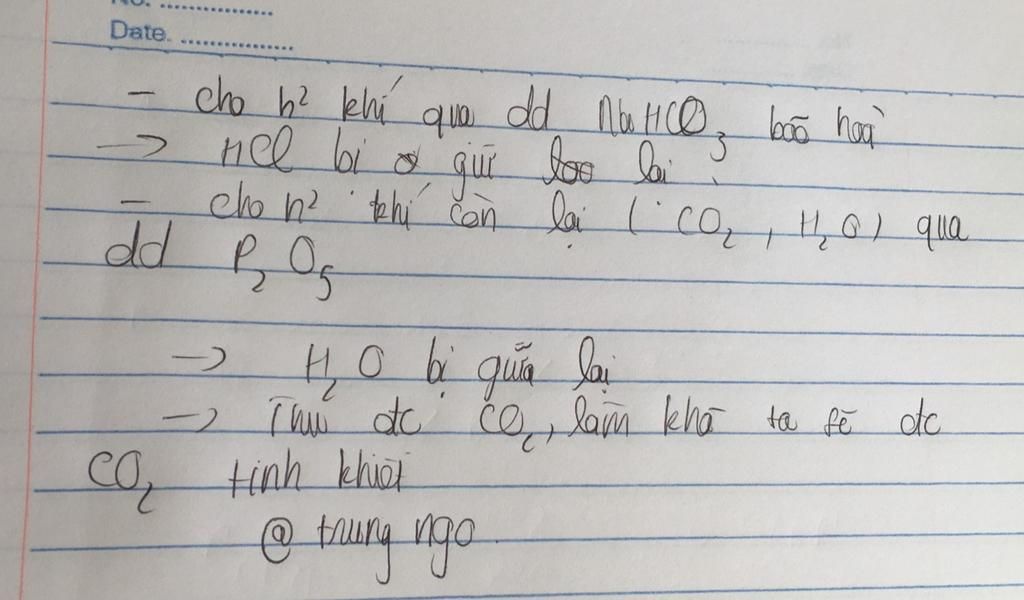 No. ..................
Date. ..................
- cho h² khí qua dd NaHCO₃ bão hoà
→ HCl bị giữ lại
- cho h² khí còn lại ( CO₂, H₂O) qua
dd P₂O₅
→ H₂O bị giữa lại
→ Thu đc CO₂, làm khô ta sẽ đc
CO₂ tinh khiết
@ trung ngo